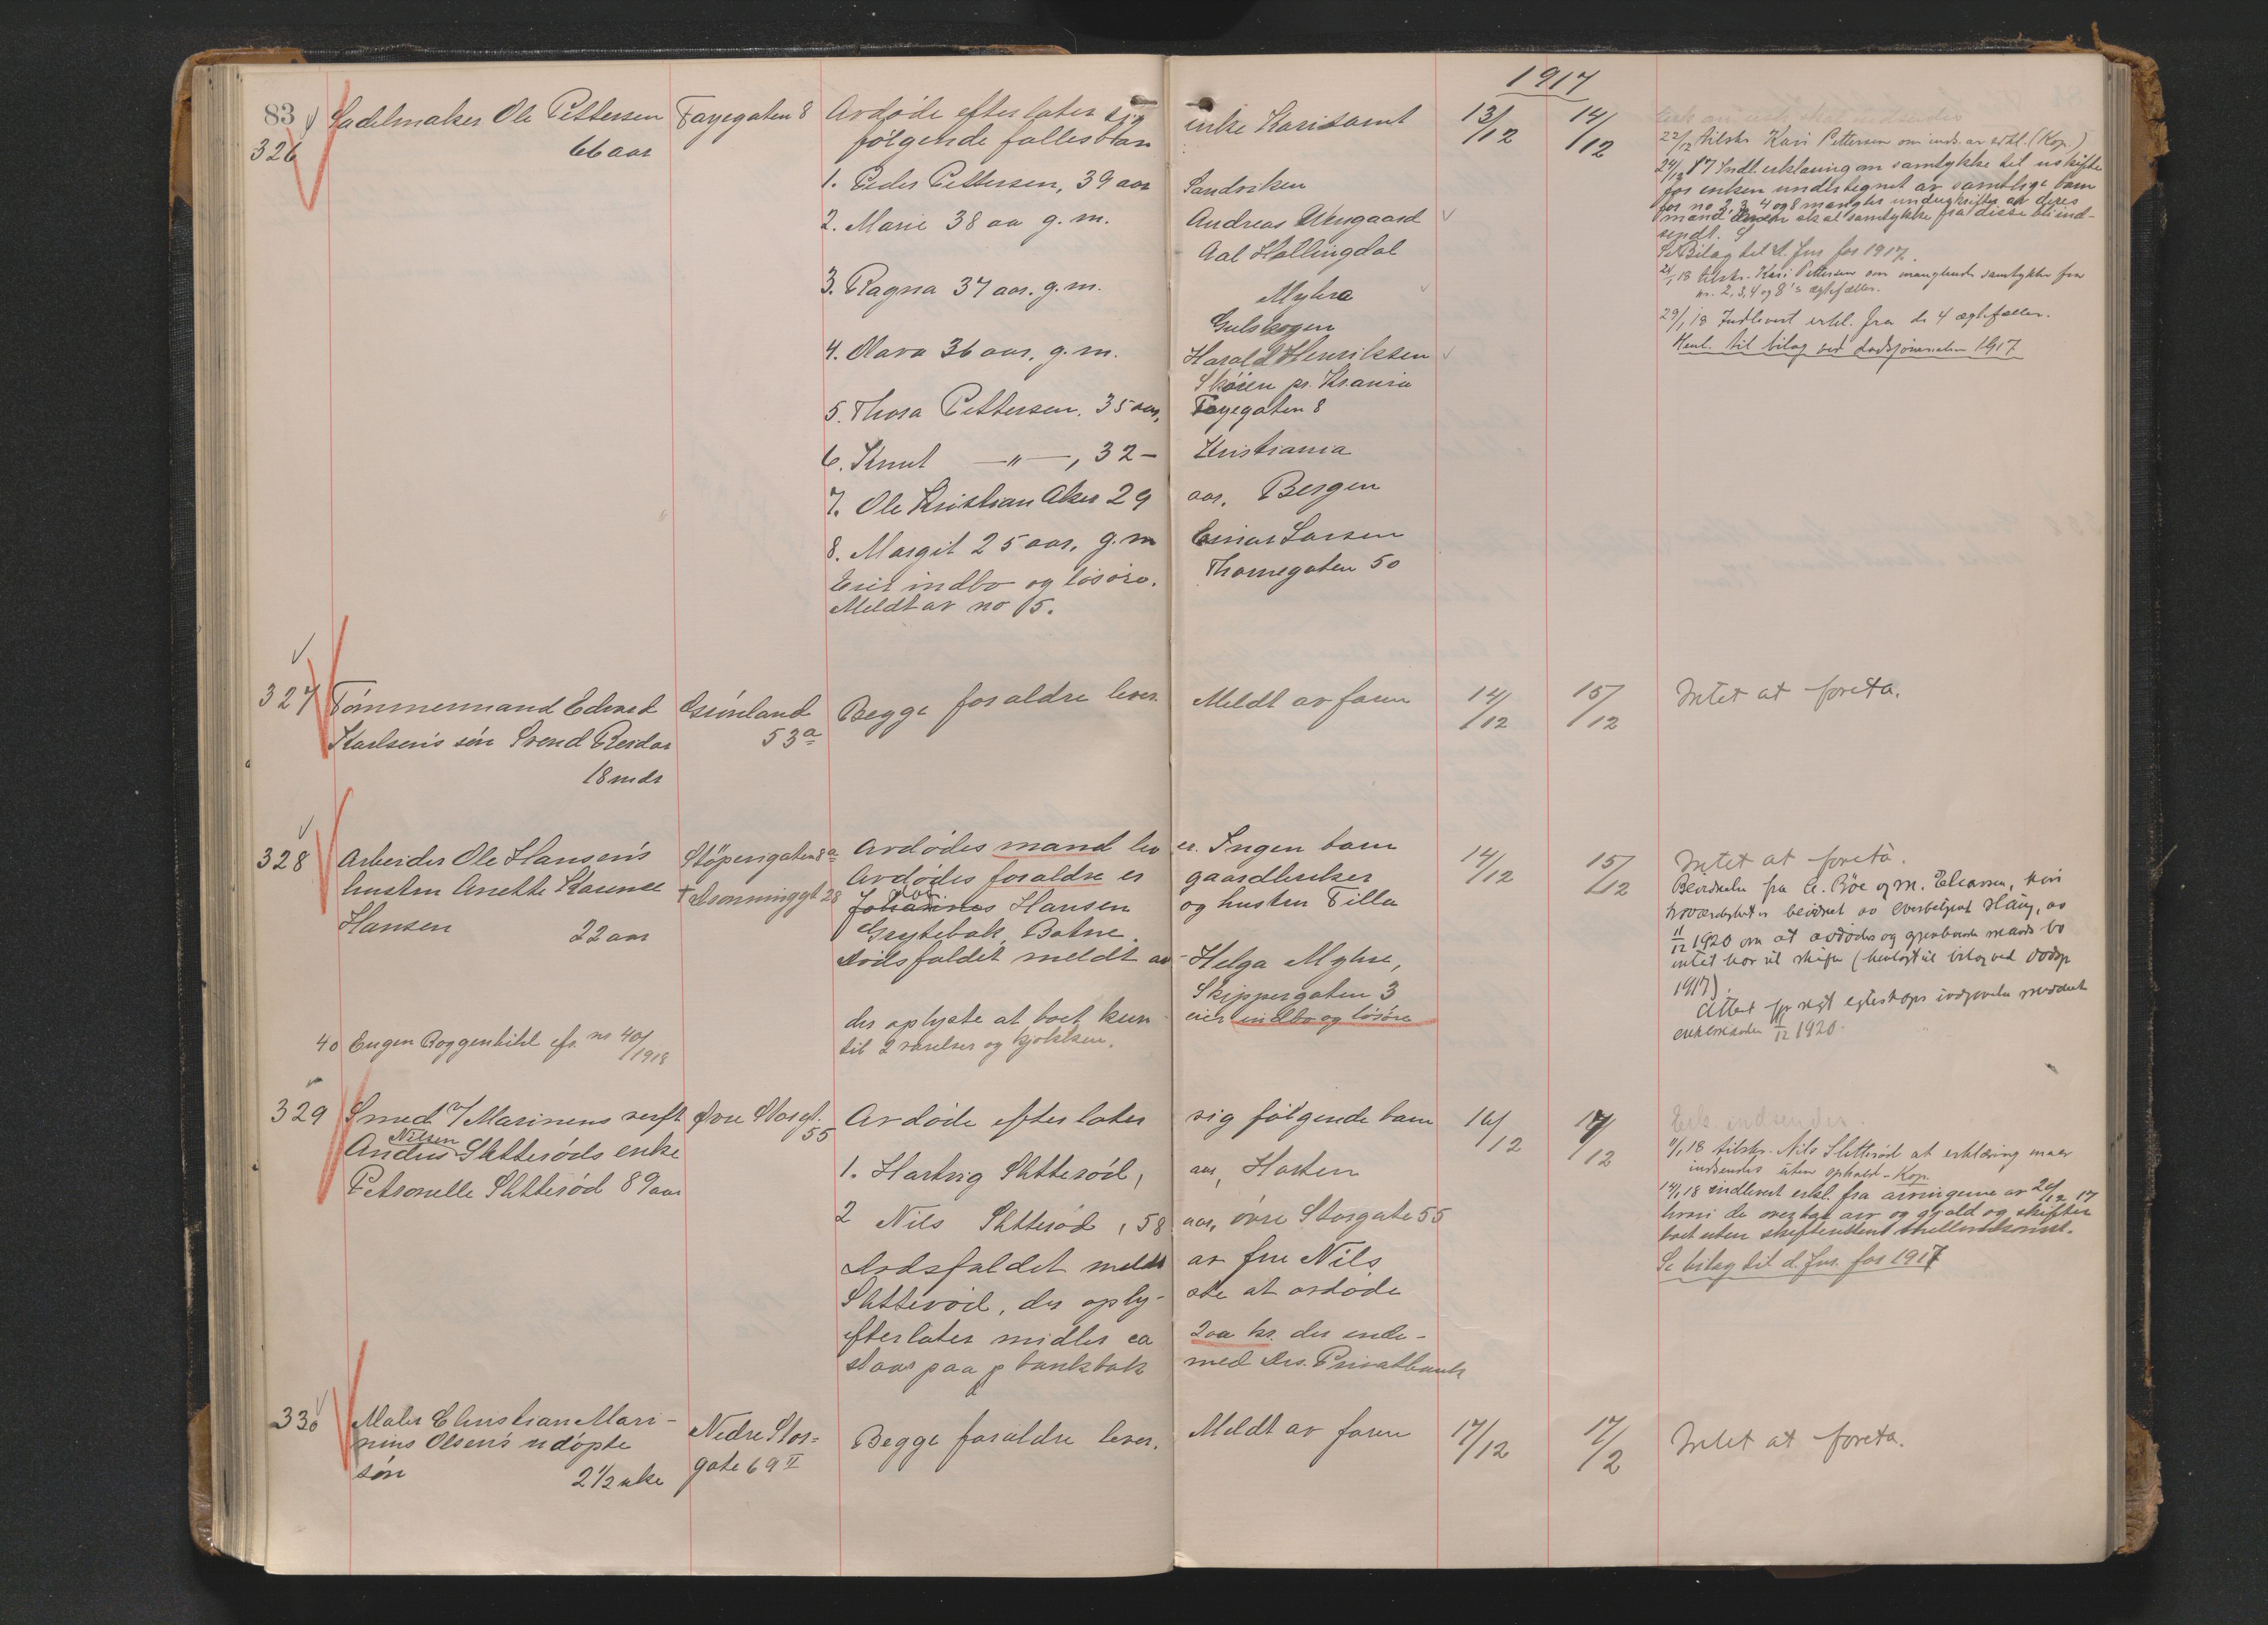 83
1917
326 Sadelmaker Ole Pettersen Fayegaten 8 Avdøde efterlater sig enke Kari samt 13/12 14/12
66 aar følgende fællesbarn
1. Peder Pettersen, 39 aar Sandviken
2. Marie 38 aa g. m. Andreas
Aal Hallingdal
3. Ragna 37 aar. g. m. Myhra
Gulskogen
4. Olava 36 aar, g. m. Harald Henriksen
Skøien pr. Krania
5. Thora Pettersen. 35 aar, Fayegaten 8
6. Knut —"—, 32 — Kristiania
7. Ole Kristian Aker 29 aar. Bergen
8. Margit 25 aar, g. m Einar Larsen
Eier indbo og løsøre. Thornegaten 50
Meldt av no 5.
22/12 tilskr. Kari Pettersen om inds. av erkl. (Kop.)
24/12 17 Indl. erklæring om samtykke til uskifte
for enken undertegnet av samtlige barn
for no 2, 3, 4 og 8 mangler underskrifter av deres
mænd, skal samtykke fra disse bli ind-
sendt.
Se Bilag til d. jur for 1917.
24/1 18 tilskr. Kari Pettersen om manglende samtykke fra
nr. 2, 3, 4 og 8's ægtefæller.
29/1 18 Indlevert erkl. fra de 4 ægtefæller.
Henl. til bilag ved dødsjournalen 1917
327 Tømmermand Edvard Grønland Begge forældre lever. Meldt av faren 14/12 15/12 Intet at foreta.
Karlsen's søn Svend Reidar 53a
18 mdr
328 Arbeider Ole Hansen's Støperigaten 8a Avdødes mand lever. Ingen barn 14/12 15/12 Intet at foreta.
hustru Anette Karense † Dronninggt 28 Avdødes forældre er gaardbruker
Hansen 22 aar Johannes Hansen og hustru Tilla
Grytebak, Botne.
Dødsfaldet meldt av Helga Myhre,
Skippergaten 3
der oplyste at boet kun eier indbo og løsøre
til 2 værelser og kjøkken.
fra A. Bøe og M. Eliassen, hvis
troværdighet er bevidnet av overbetjent Haug, av
11/12 1920 om at avdødes og gjenlevende mands bo
intet har til skifte (henlagt til bilag ved dødsp
1917).
Attest for nyt egteskaps indgaaelse meddelt
enkemanden 11/12 1920.
40 Eugen Roggenbihl efs. no 40/1918
329 Smed v/ Marinens verft Øvre Storgt. Avdøde efterlater sig følgende barn 16/12 17/12
Nilsen 55
Anders Sletterøds enke
Petronelle Sletterød 89 aar
1. Hartvig Sletterød, aar, Horten
2 Nils Sletterød, 58 aar, øvre Storgate 55
Dødsfaldet meldt av fru Nils
Sletterød, der oply- ste at avdøde
efterlater midler ca 200 kr. der inde-
staar paa p bankbok med Drs. Privatbank
Erk. indsendes.
11/1 18 tilskr. Nils Sletterød at erklæring maa
indsendes uten ophold - Kop.
14/1 18 indlevert erkl. fra arvingerne av 20/12 17
hvori de overtar arv og gjæld og skifter
boet uten skifterettens mellemkomst.
Se bilag til d. jur. for 1917
330 Maler Christian Mari- Nedre Stor= Begge forældre lever. Meldt av faren 17/12 17/2 Intet at foreta.
nius Olsen's udøpte gate 69 II
søn 2 1/2 uke